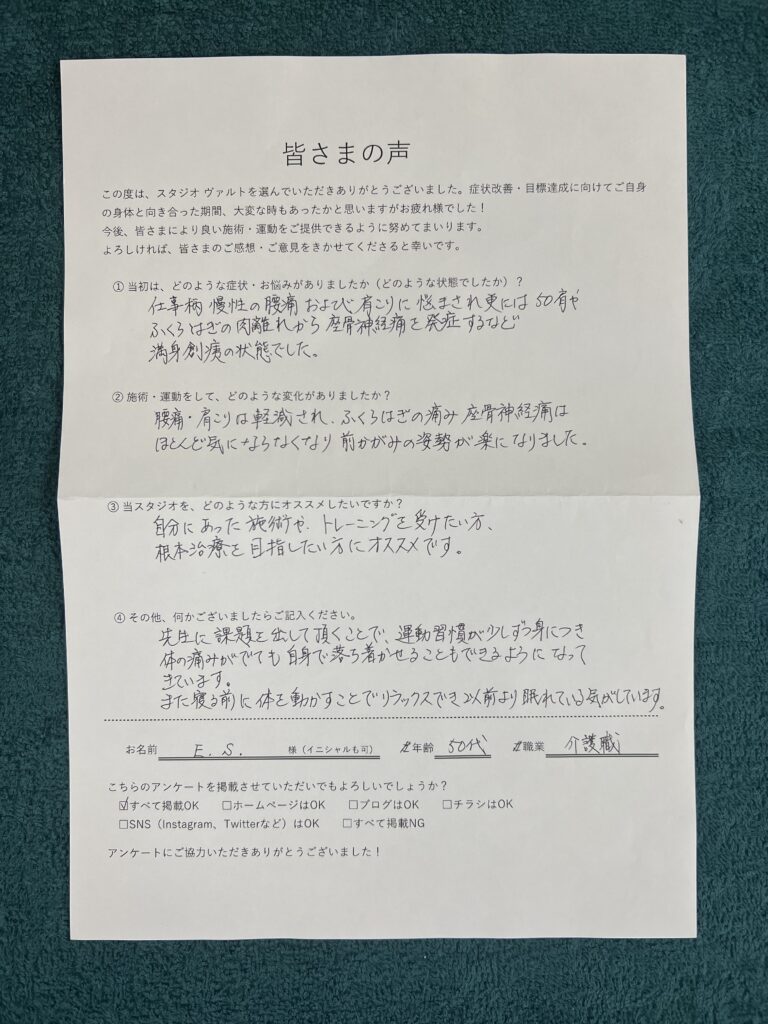 皆さまの声
この度は、スタジオ ヴァルトを選んでいただきありがとうございました。症状改善・目標達成に向けてご自身
の身体と向き合った期間、大変な時もあったかと思いますがお疲れ様でした！
今後、皆さまにより良い施術・運動をご提供できるように努めてまいります。
よろしければ、皆さまのご感想・ご意見をきかせてくださると幸いです。
①当初は、どのような症状・お悩みがありましたか（どのような状態でしたか）？
仕事柄 慢性の腰痛 および 肩こりに 悩まされ更には 50肩や
ふくらはぎの肉離れから 座骨神経痛を発症するなど
満身創痍の状態でした。
②施術・運動をして、どのような変化がありましたか？
腰痛・肩こりは軽減され、ふくらはぎの痛み 座骨神経痛は
ほとんど気にならなくなり 前かがみの姿勢が楽になりました。
③当スタジオを、どのような方にオススメしたいですか？
自分にあった施術や、トレーニングを受けたい方、
根本治療を目指したい方にオススメです。
④その他、何かございましたらご記入ください。
先生に課題を出して頂くことで、運動習慣が少しずつ身につき
体の痛みがでても自身で落ち着かせることもできるようになって
きています。
また寝る前に体を動かすことでリラックスでき以前より眠れている気がしています。
お名前 E. S. 様（イニシャルも可） ☑年齢 50代 ☑職業 介護職
こちらのアンケートを掲載させていただいでもよろしいでしょうか？
☑すべて掲載OK □ホームページはOK □ブログはOK □チラシはOK
□SNS（Instagram、Twitterなど）はOK □すべて掲載NG
アンケートにご協力いただきありがとうございました！